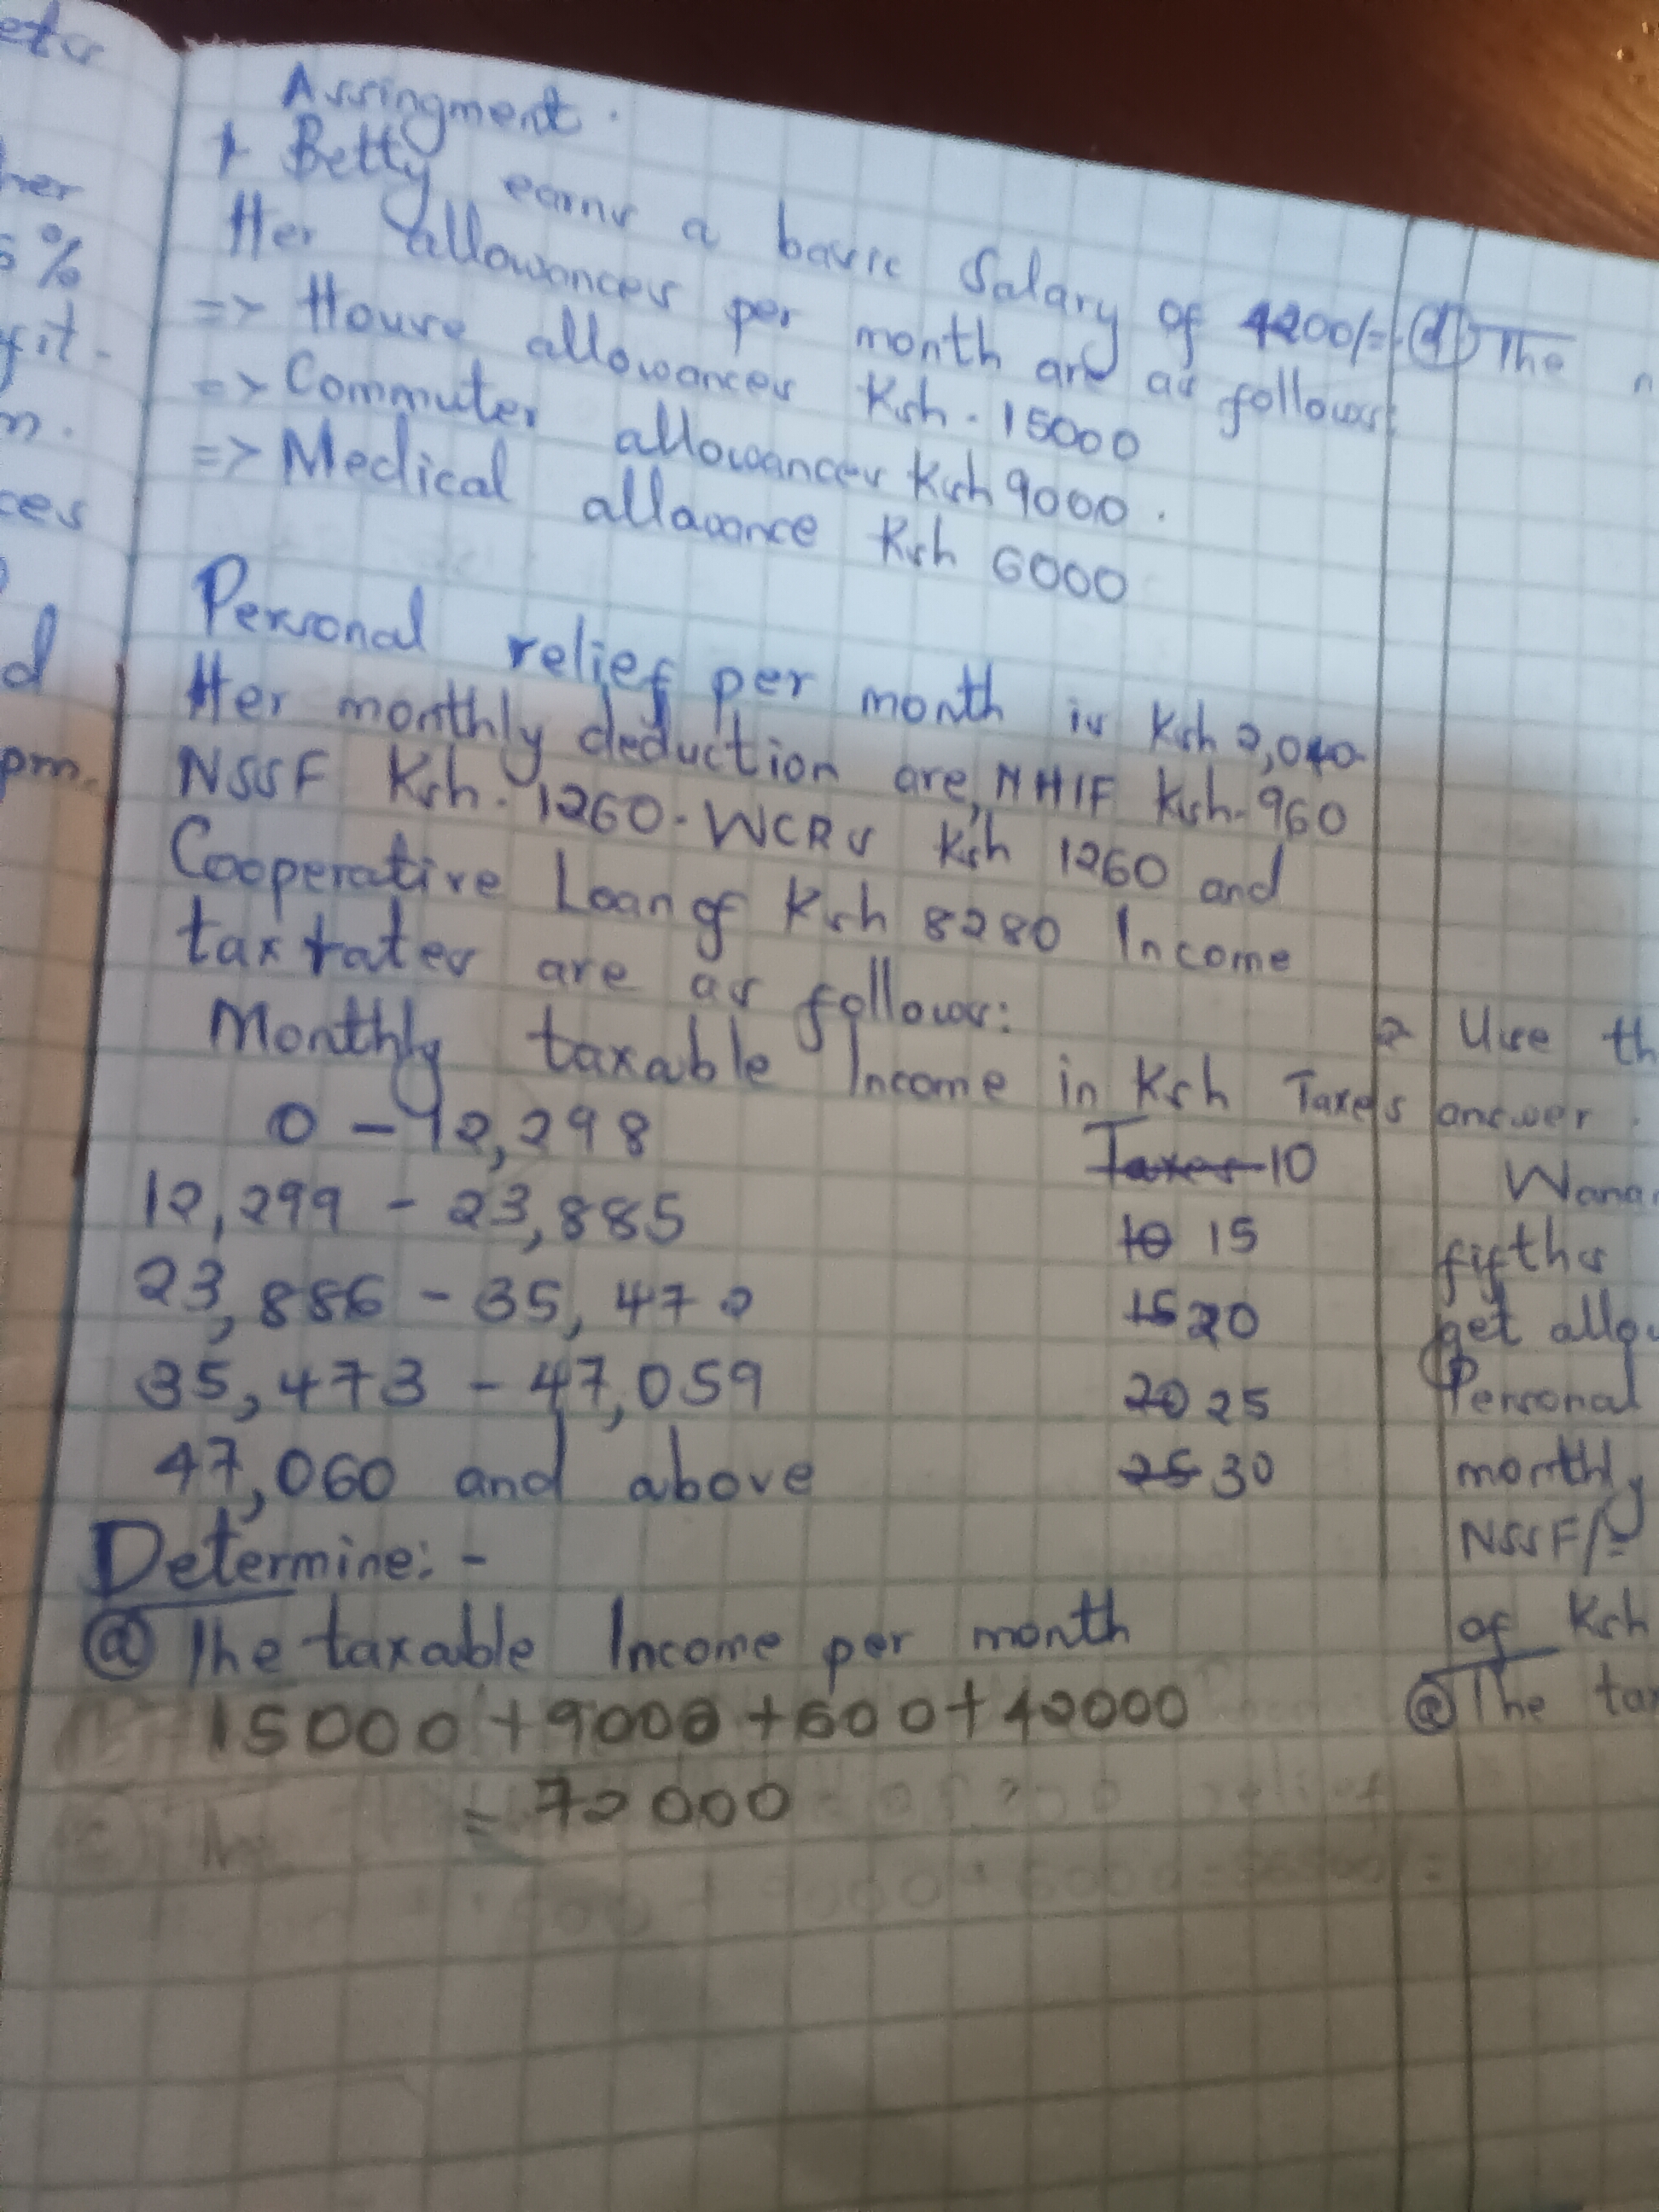 Assingment.
1 Betty earns a basic Salary of 4200/=
Her allowances per month are as follows
=> House allowances Ksh. 15000
=> Commuter allowances Ksh 9000.
=> Medical allowance Ksh 6000
Personal relief per month is Ksh 2,040
Her monthly deduction are, NHIF Ksh. 960
NSSF Ksh. 1260. WCRs Ksh 1260 and
Cooperative Loan of Ksh 8280 Income
tax rates are as follows:
Monthly taxable Income in Ksh Taxes
0 - 12,298 Taxes 10
12,299 - 23,885 10 15
23,886 - 35,472 15 20
35,473 - 47,059 20 25
47,060 and above 25 30
Determine:-
(a) The taxable Income per month
15000 + 9000 + 600 + 42000
= 72000
ets
her
%
fit.
ces
d
pm.
(d) The
2 Use th
answer.
Wana
fifths
get allo
Personal
monthly
NSSF/=
of Ksh
(a) The tax